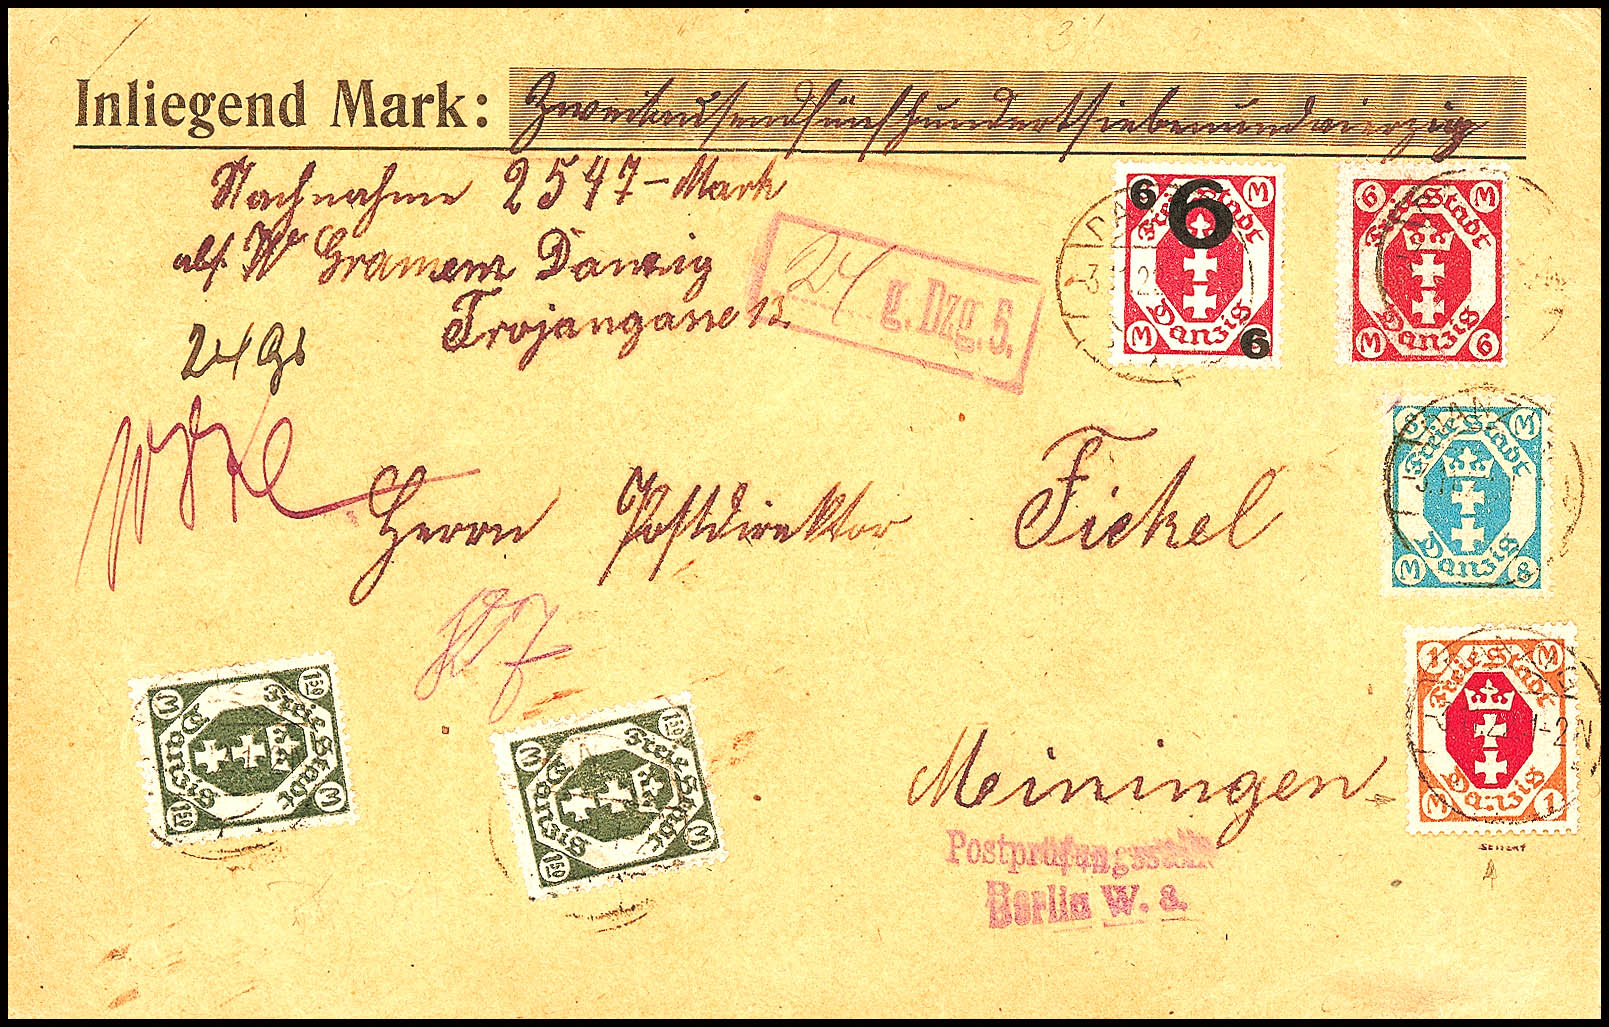 Inliegend Mark: Zweitausendfünfhundertsiebenundvierzig
Nachnahme 2547-Mark
abs. W. Gramenz Danzig
Trojangasse 12
24 gr
24 g. Dzg. 5.
Herrn Postdirektor Fickel
Meiningen
Postprüfungsstelle
Berlin W. 8.
6 6 M
Freie Stadt
Danzig
M 6
6 M
Freie Stadt
Danzig
M 6
8 M
Freie Stadt
Danzig
M 8
1 M
Freie Stadt
Danzig
M 1
1-2N
SEILERT
M 1 50
Freie Stadt
Danzig
1 50 M
M 1 50
Freie Stadt
Danzig
1 50 M